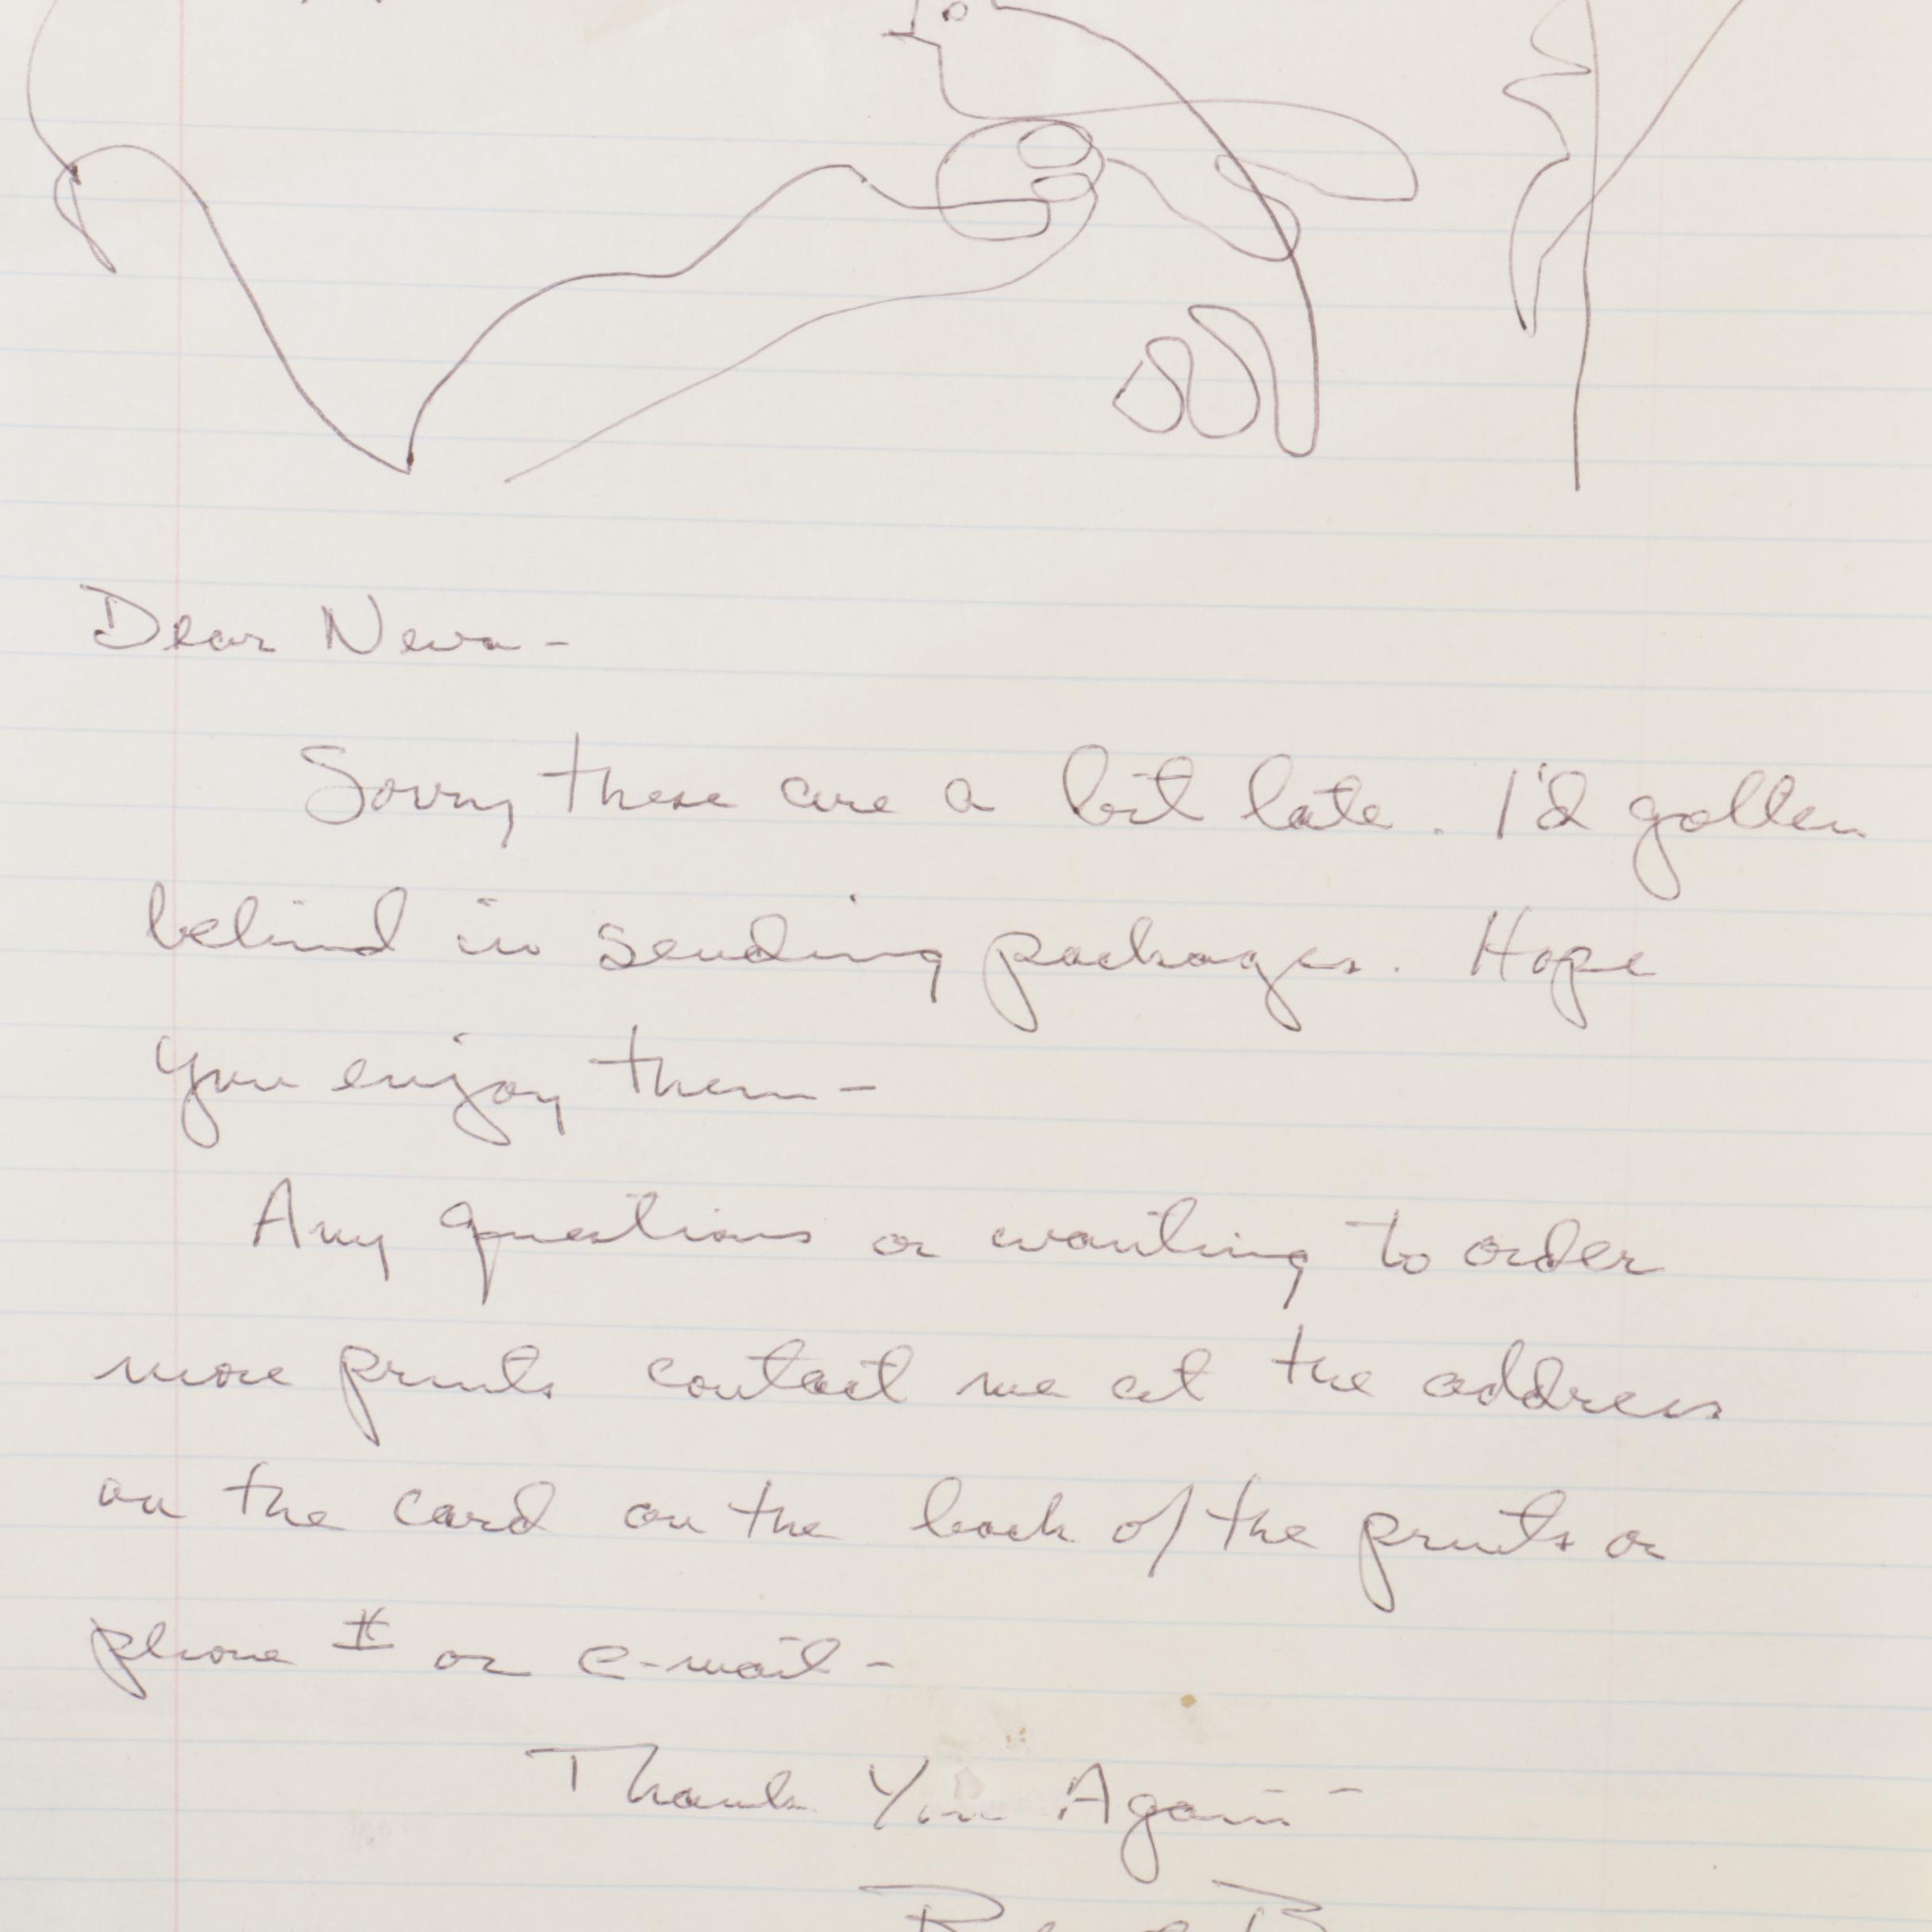 Dear Neva-
Sorry these are a bit late. I'd gotten
behind in sending packages. Hope
you enjoy them-
Any questions or wanting to order
more prints contact me at the address
on the card on the back of the prints or
phone # or e-mail-
Thank You Again-